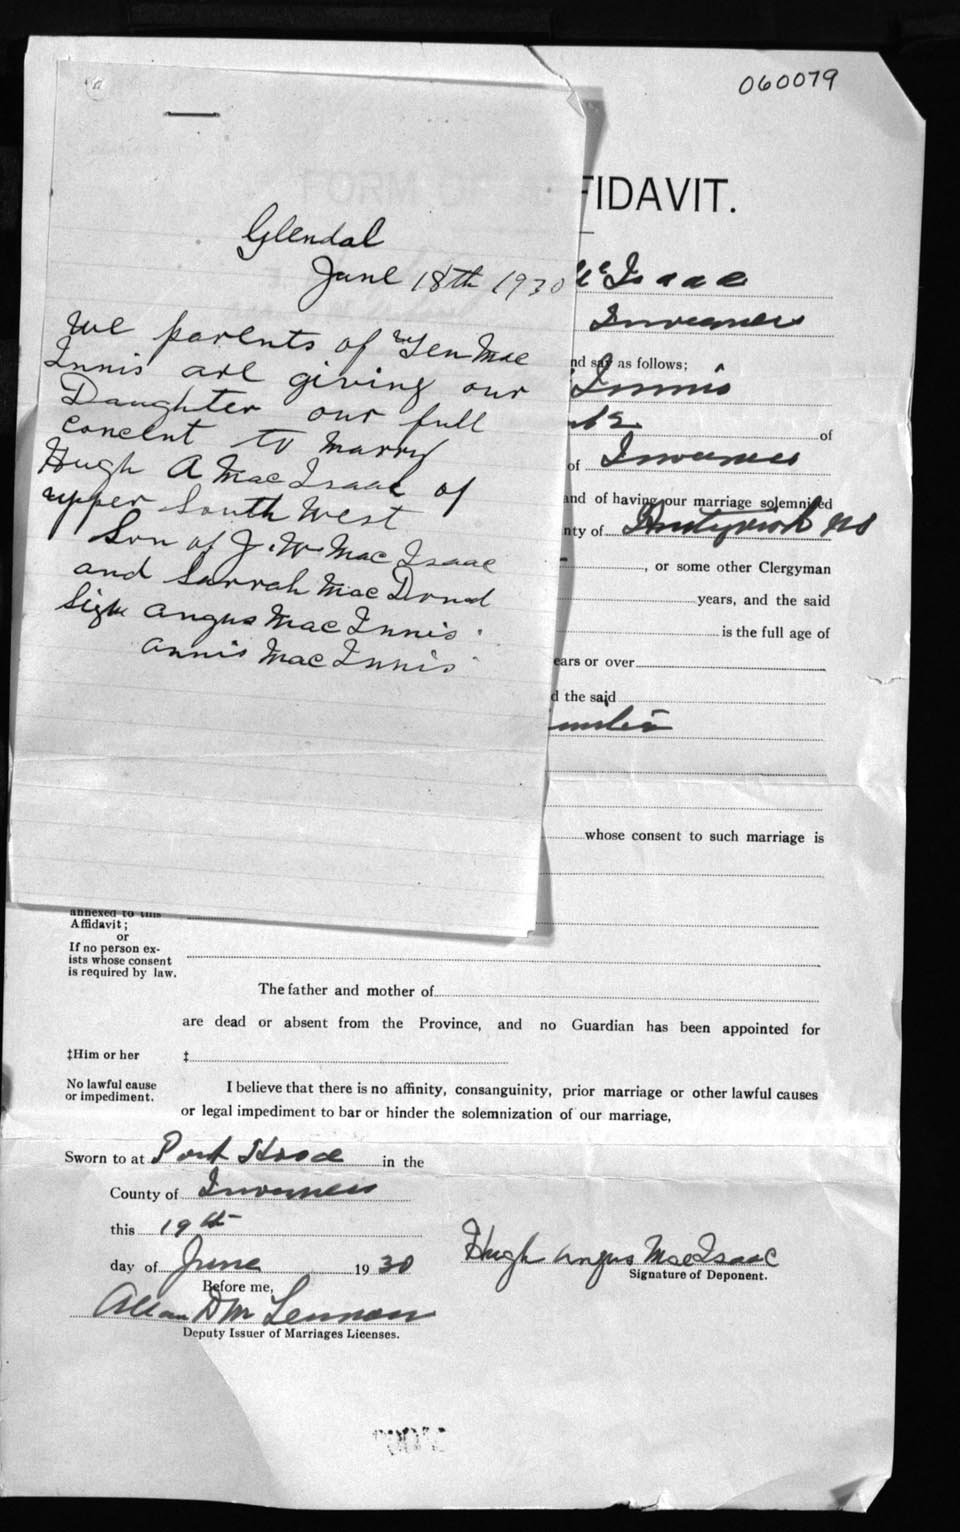 060079
FIDAVIT.
Glendal
June 18th 1930
Isaac
Inverness
We parents of Mac
nd say as follows;
Innis are giving our
Innis
Daughter our full
of
concent to marry
of Inverness
Hugh A Mac Isaac of
and of having our marriage solemnized
upper South West
nty of NS
Son of J. W. Mac Isaac
, or some other Clergyman
and Sarrah Mac Donad
years, and the said
Sign Angus Mac Innis
is the full age of
Annis Mac Innis
ears or over
d the said
whose consent to such marriage is
annexed to this
Affidavit;
or
If no person ex-
ists whose consent
is required by law.
The father and mother of
are dead or absent from the Province, and no Guardian has been appointed for
‡Him or her ‡
No lawful cause
or impediment.
I believe that there is no affinity, consanguinity, prior marriage or other lawful causes
or legal impediment to bar or hinder the solemnization of our marriage,
Sworn to at Port Hood in the
County of Inverness
this 19th
day of June 1930
Hugh Angus MacIsaac
Signature of Deponent.
Before me,
Allan D Mc Lennan
Deputy Issuer of Marriages Licenses.